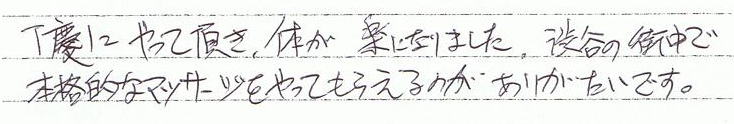 丁慶にやって頂き、体が楽になりました。渋谷の街中で
本格的なマッサージをやってもらえるのがありがたいです。